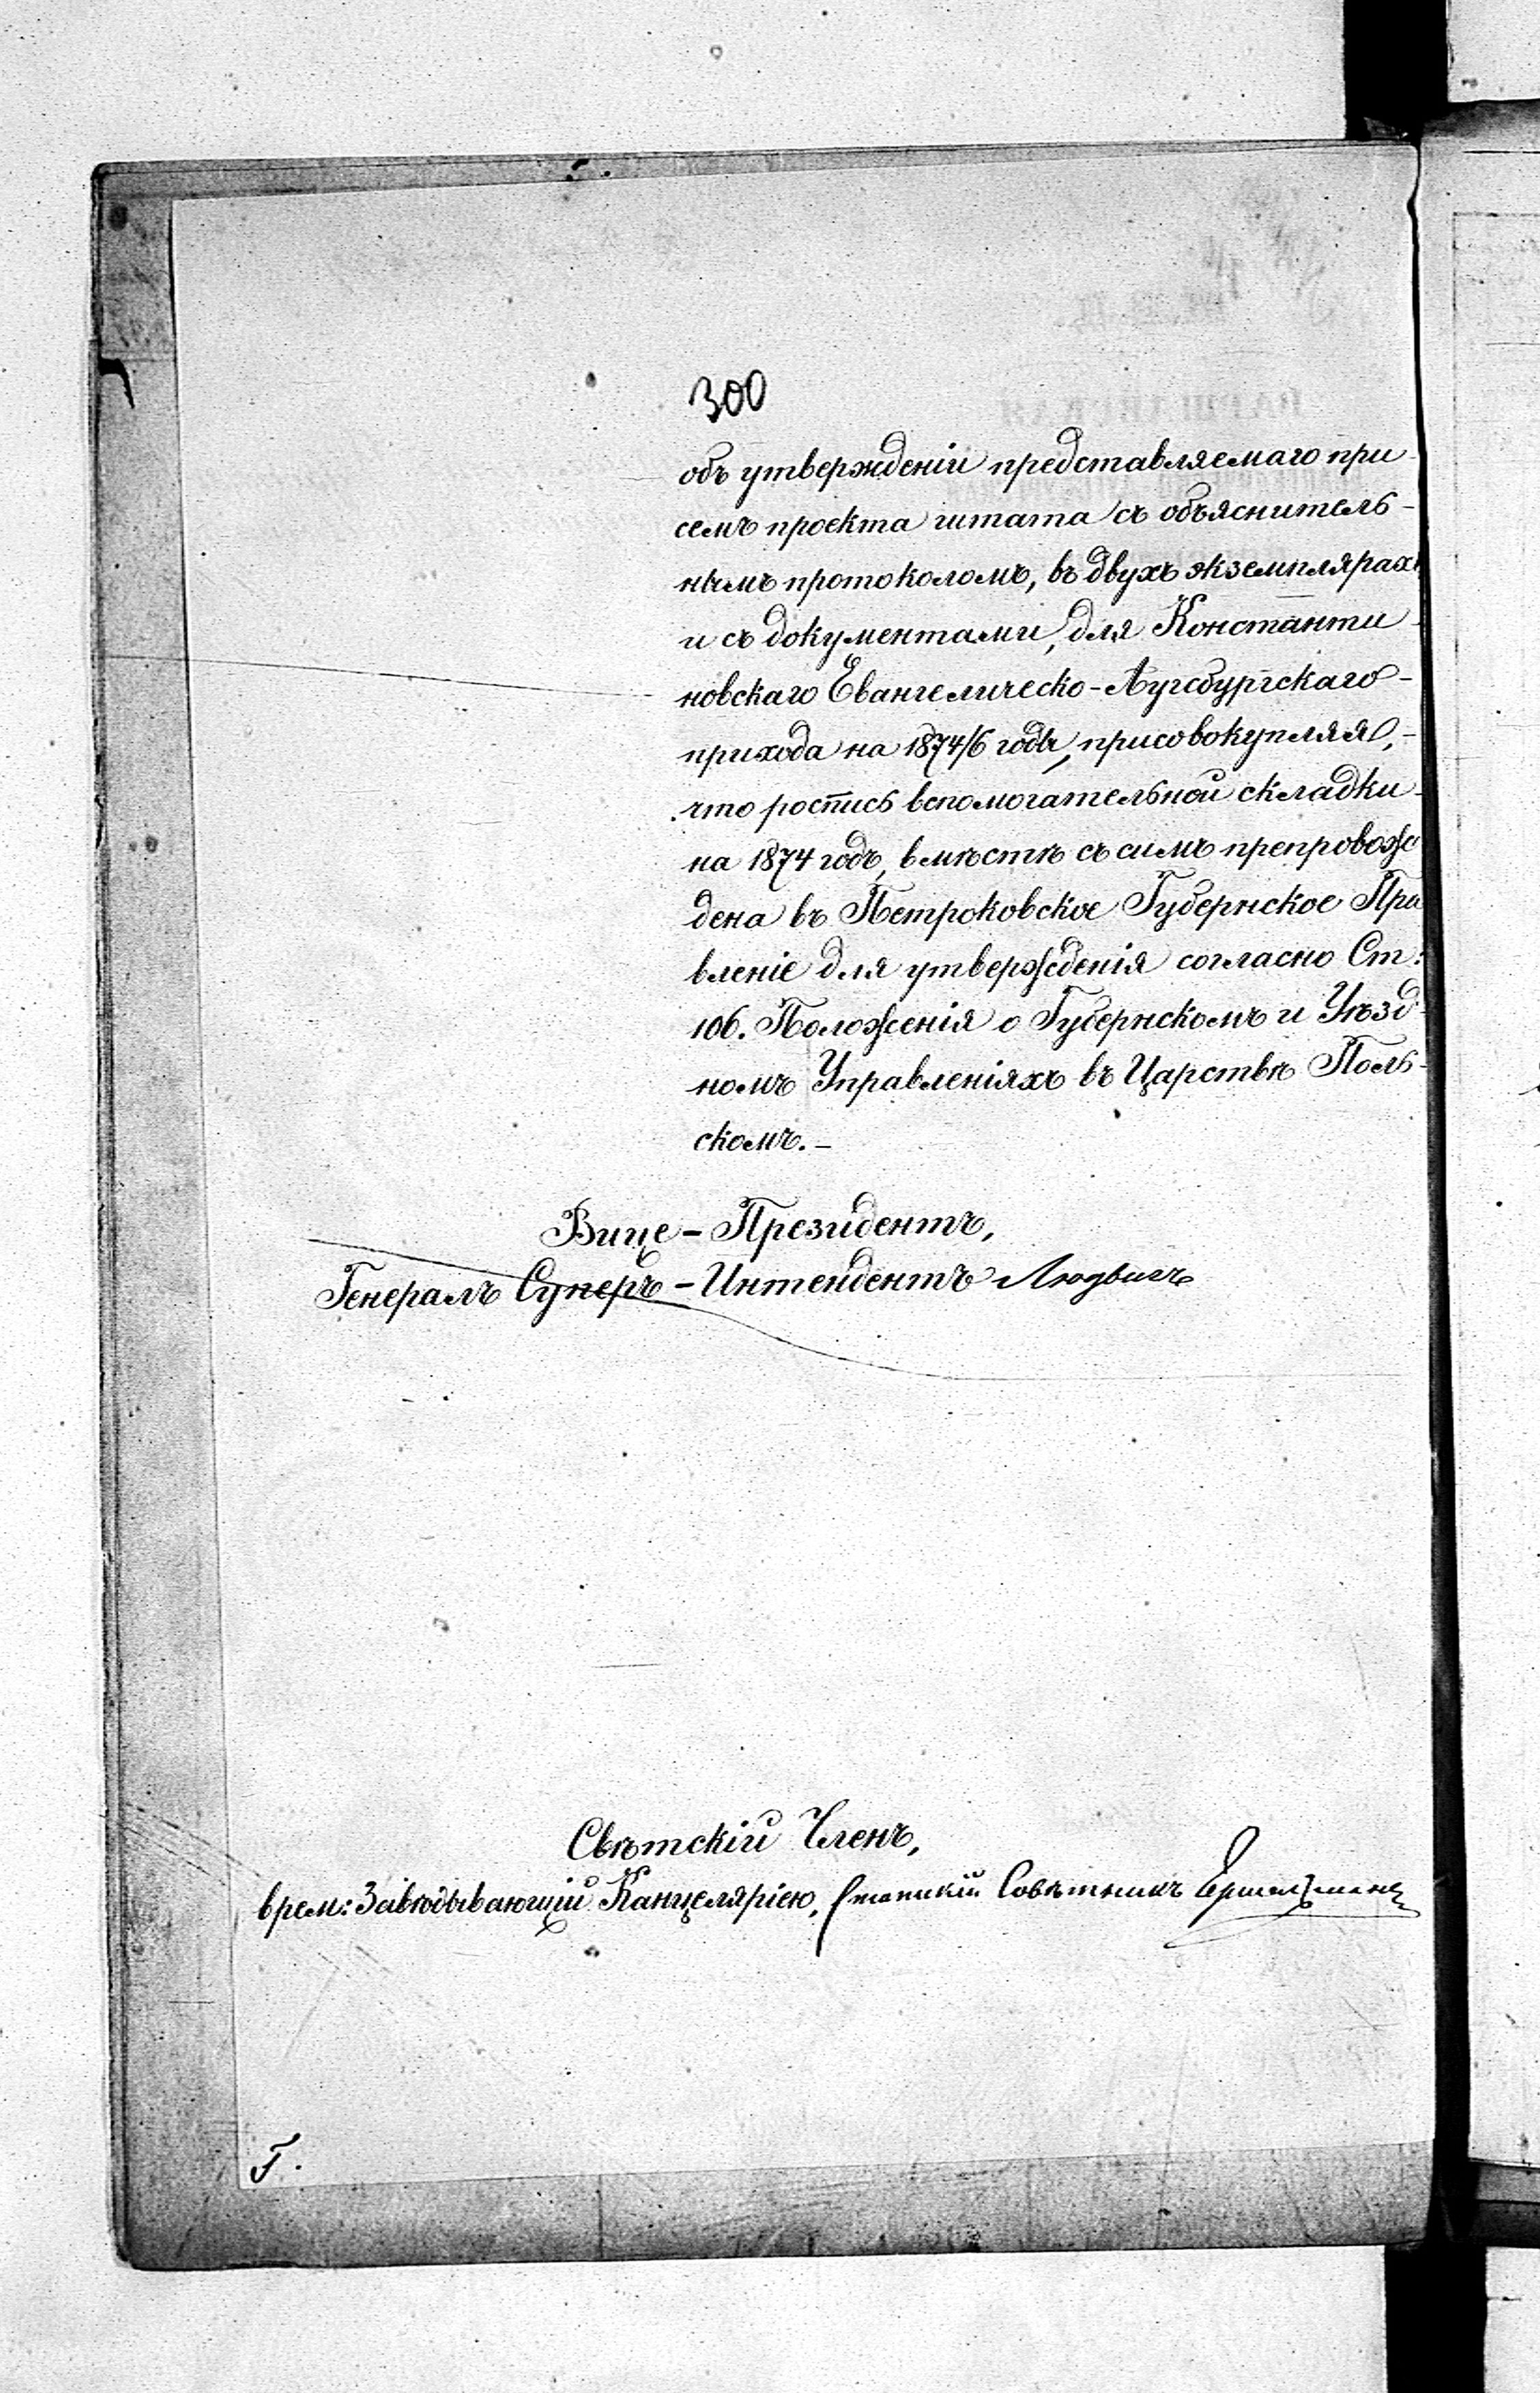 300
объ утвержденіи представляемаго при
семъ проекта штата съ объяснитель-
нымъ протоколомъ, въ двухъ экземплярахъ
и съ документами, для Константи-
новскаго Евангелическо-Аугсбургскаго-
прихода на 1874/6 годы, присовокупляя,-
что роспись вспомогательной складки-
на 1874 годъ, вмѣстѣ съ симъ препровож
дена въ Петроковское Губернское Пра
вленіе для утвержденія согласно Ст:
106. Положенія о Губернскомъ и Уѣзд-
номъ Управленіяхъ въ Царствѣ Поль-
скомъ.-
Вице-Президентъ,
Генералъ Суперъ-Интендентъ Людвигъ
Свѣтскій Членъ,
врем: Завѣдывающій Канцеляріею, Статскій Совѣтникъ
Г.